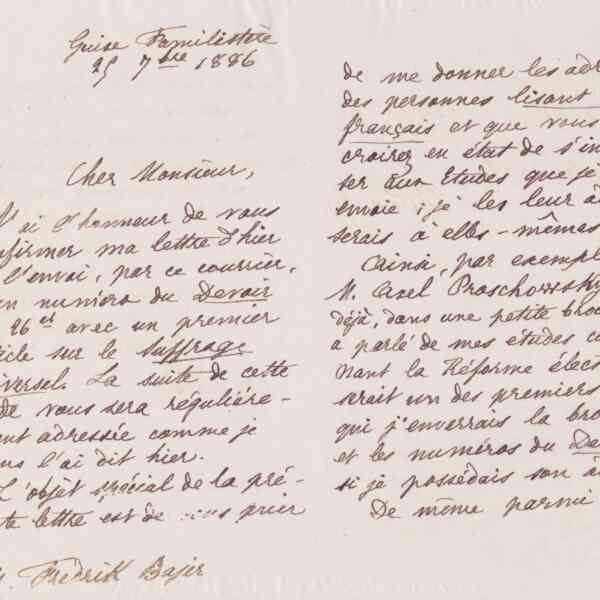 Guise Familistère
25 7bre 1886
Cher Monsieur,
J'ai l'honneur de vous
nfirmer ma lettre d'hier
l'envoi, par ce courrier,
un numéro du Devoir
26 et avec un premier
icle sur le suffrage
iversel. La suite de cette
de vous sera régulière-
ent adressée comme je
ous l'ai dit hier.
L'objet spécial de la pré-
te lettre est de vous prier
Fredrik Bajer
de me donner les adr
des personnes lisant
français et que vous
croirez en état de s'in
ser aux Etudes que je
envoie ; je les leur a
serais à elles-mêmes
Ainsi, par exempl
M. Axel Proschowsky
déjà, dans une petite broc
a parlé de mes études co
nant la Réforme élect
serait un des premiers
qui j'enverrais la bro
et les numéros du De
si je possédais son a
De même parmi